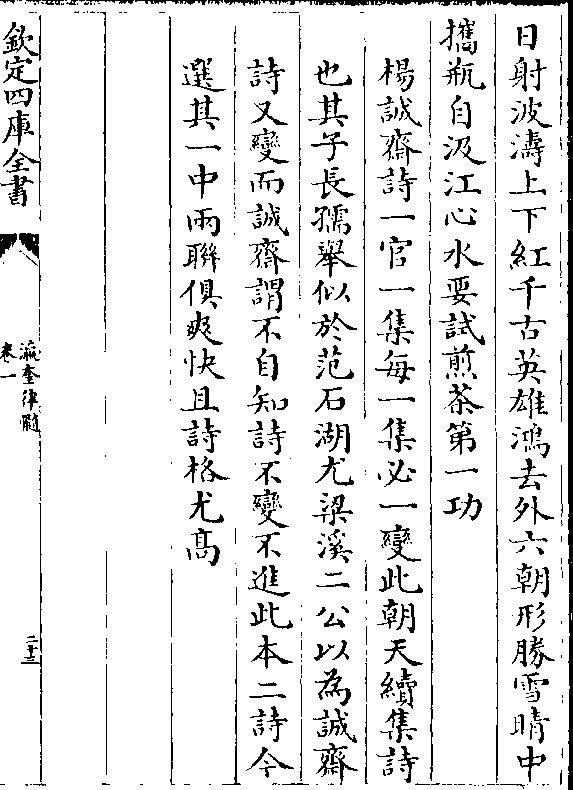 日射波濤上下紅千古英雄鴻去外六朝形勝雪晴中
攜瓶自汲江心水要試煎茶第一功
楊誠齋詩一官一集每一集必一變此朝天續集詩
也其子長孺舉似於范石湖尤梁溪二公以為誠齋
詩又變而誠齋謂不自知詩不變不進此本二詩今
選其一中兩聯俱爽快且詩格尤髙
欽定四庫全書
瀛奎律髓
卷一
二十三